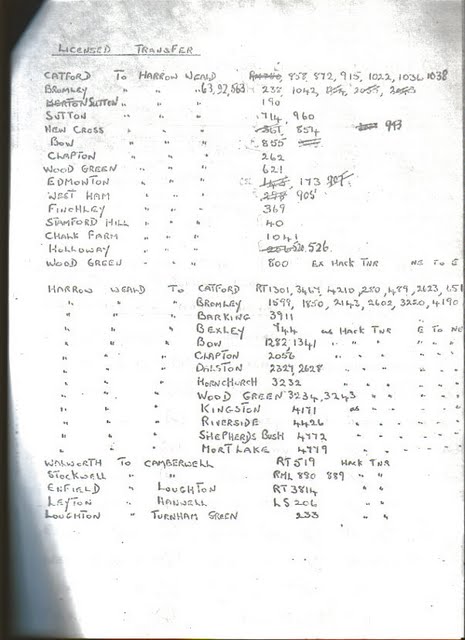 LICENSED TRANSFER
CATFORD TO HARROW WEALD 858, 872, 915, 1022, 1036, 1038
BROMLEY " " " 63,92,563 238, 1042,
SUTTON " " " 190
SUTTON " " " 714, 960
NEW CROSS " " " 361, 854 993
BOW " " " 855
CLAPTON " " " 262
WOOD GREEN " " " 621
EDMONTON " " " 173
WEST HAM " " " 905
FINCHLEY " " " 369
STAMFORD HILL " " " 40
CHALK FARM " " " 1041
HOLLOWAY " " " 526
WOOD GREEN " " " 800 EX HACK TNR NS TO E
HARROW WEALD TO CATFORD RT1301, 3469, 4210, 250, 489, 2623, 651
" " " BROMLEY 1599, 1850, 2143, 2602, 3220, 4190
" " " BARKING 3911
" " " BEXLEY 744 as HACK TNR E TO NS
" " " BOW 1282, 1341 " " " "
" " " CLAPTON 2056 " " " "
" " " DALSTON 2327, 2628 " " " "
" " " HORNCHURCH 3232 " " " "
" " " WOOD GREEN 3234, 3243 " " " "
" " " KINGSTON 4171 as " " "
" " " RIVERSIDE 4426 " " " "
" " " SHEPHERDS BUSH 4772 " " " "
" " " MORTLAKE 4779 " " " "
WALWORTH TO CAMBERWELL RT519 HACK TNR
STOCKWELL " " RML 880 889 " "
ENFIELD " LOUGHTON RT3814 " "
LEYTON " HANWELL LS 206 " "
LOUGHTON " TURNHAM GREEN 233 " "